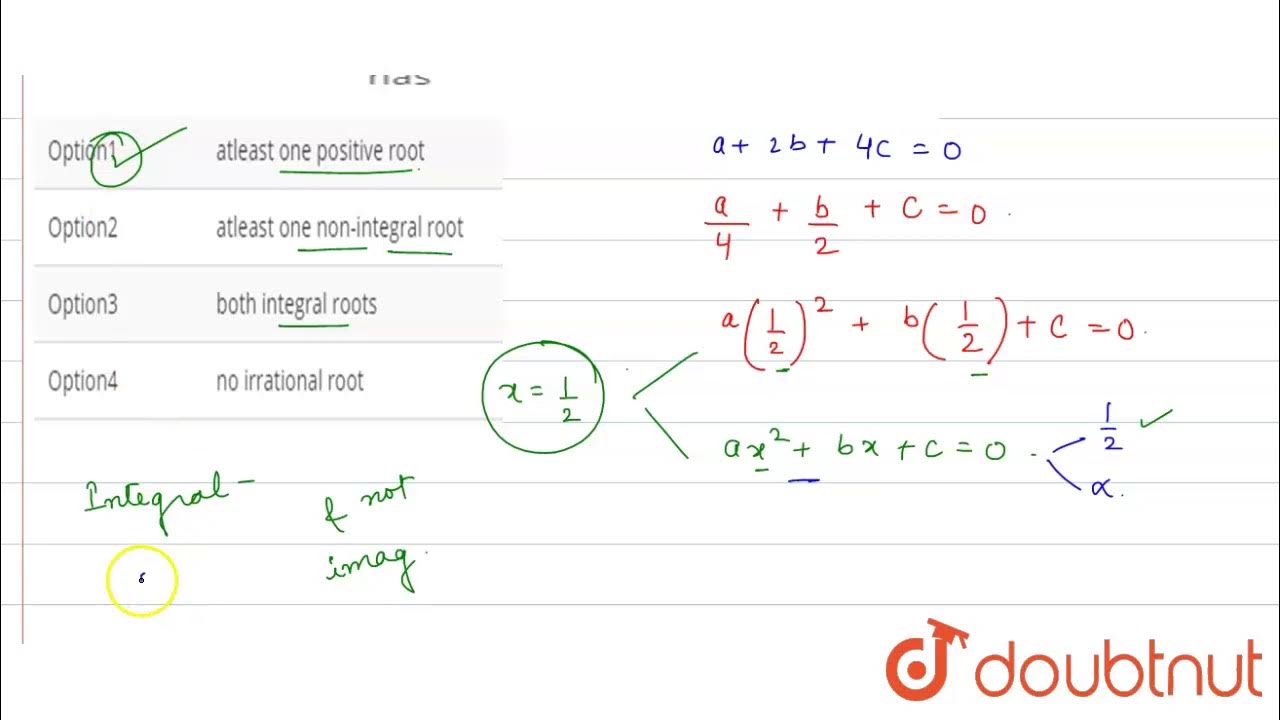 has
Option1 atleast one positive root
Option2 atleast one non-integral root
Option3 both integral roots
Option4 no irrational root
a + 2b + 4c = 0
a/4 + b/2 + c = 0
a(1/2)² + b(1/2) + c = 0
x = 1/2
ax² + bx + c = 0
1/2
α
Integral -
& not
imag
doubtnut